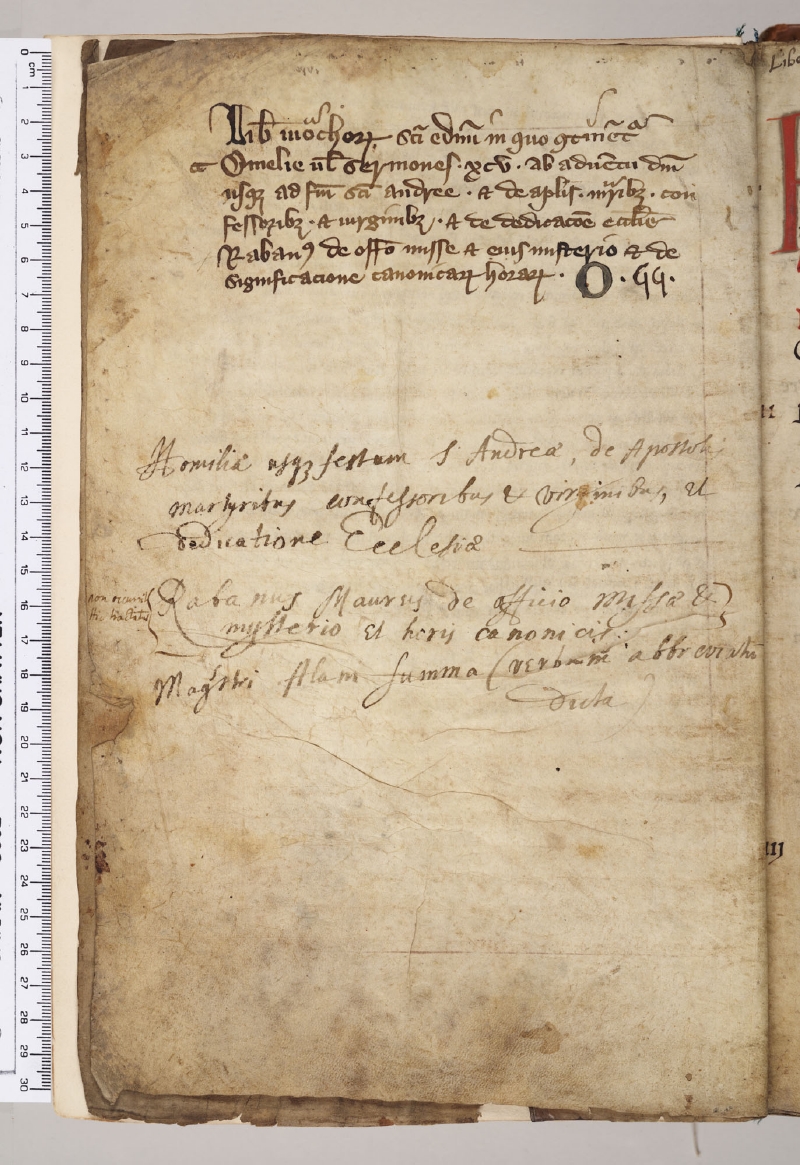 Lib' mo'chor' sc'i edm' in quo gtine't'
Omelie ul' sermones · xcv · ab aduentu dm'
usq' ad fm' sc'i andree · et de ap'lis · m'rib' · con
fessorib' · et uirginib' · et de dedicatoe eccl'ie
Raban' de offo misse et eius misterio et de
significacione canonicar' horar' · O · GG ·
Homiliæ usq' festum S Andreæ, de Apostolis
martyribus confessoribus & virginibus, et
dedicatione Ecclesiæ
Rabanus Maurus de officio missæ &
mysterio et horis canonicis.
Magistri summa (verbum abbreviatum
dicta)
Libe
II
III
0 cm 1 2 3 4 5 6 7 8 9 10 11 12 13 14 15 16 17 18 19 20 21 22 23 24 25 26 27 28 29 30